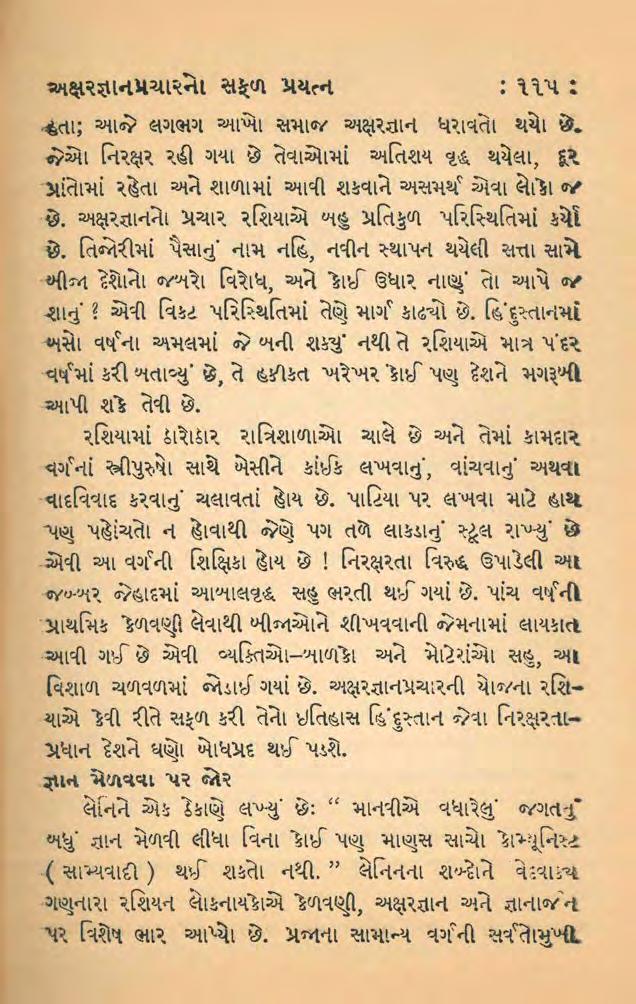 અક્ષરજ્ઞાનપ્રચારનો સફળ પ્રયત્ન : ૧૧૫ :
હતા; આજે લગભગ આખો સમાજ અક્ષરજ્ઞાન ધરાવતો થયો છે.
જેઓ નિરક્ષર રહી ગયા છે તેવાઓમાં અતિશય વૃદ્ધ થયેલા, દૂર
પ્રાંતોમાં રહેતા અને શાળામાં આવી શકવાને અસમર્થ એવા લોકો જ
છે. અક્ષરજ્ઞાનનો પ્રચાર રશિયાએ બહુ પ્રતિકુળ પરિસ્થિતિમાં કર્યો
છે. તિજોરીમાં પૈસાનું નામ નહિ, નવીન સ્થાપન થયેલી સત્તા સામે
બીજા દેશોનો જબરો વિરોધ, અને કોઈ ઉધાર નાણું તો આપે જ
શાનું ? એવી વિકટ પરિસ્થિતિમાં તેણે માર્ગ કાઢ્યો છે. હિંદુસ્તાનમાં
બસો વર્ષના અમલમાં જે બની શક્યું નથી તે રશિયાએ માત્ર પંદર
વર્ષમાં કરી બતાવ્યું છે, તે હકીકત ખરેખર કોઈ પણ દેશને મગરૂબી
આપી શકે તેવી છે.
રશિયામાં ઠારોઠાર રાત્રિશાળાઓ ચાલે છે અને તેમાં કામદાર
વર્ગનાં સ્ત્રીપુરુષો સાથે બેસીને કાંઈક લખવાનું, વાંચવાનું અથવા
વાદવિવાદ કરવાનું ચલાવતાં હોય છે. પાટિયા પર લખવા માટે હાથ
પણ પહોંચતો ન હોવાથી જેણે પગ તળે લાકડાનું સ્ટૂલ રાખ્યું છે
એવી આ વર્ગની શિક્ષિકા હોય છે ! નિરક્ષરતા વિરુદ્ધ ઉપાડેલી આ
જબ્બર જેહાદમાં આબાલવૃદ્ધ સહુ ભરતી થઈ ગયાં છે. પાંચ વર્ષની
પ્રાથમિક કેળવણી લેવાથી બીજાઓને શીખવવાની જેમનામાં લાયકાત
આવી ગઈ છે એવી વ્યક્તિઓ–બાળકો અને મોટેરાંઓ સહુ, આ
વિશાળ ચળવળમાં જોડાઈ ગયાં છે. અક્ષરજ્ઞાનપ્રચારની યોજના રશિ-
યાએ કેવી રીતે સફળ કરી તેનો ઇતિહાસ હિંદુસ્તાન જેવા નિરક્ષરતા-
પ્રધાન દેશને ઘણો બોધપ્રદ થઈ પડશે.
જ્ઞાન મેળવવા પર જોર
લેનિને એક ઠેકાણે લખ્યું છેઃ “ માનવીએ વધારેલું જગતનું
બધું જ્ઞાન મેળવી લીધા વિના કોઈ પણ માણસ સાચો કોમ્યૂનિસ્ટ
( સામ્યવાદી ) થઈ શકતો નથી. ” લેનિનના શબ્દોને વેદવાક્ય
ગણનારા રશિયન લોકનાયકોએ કેળવણી, અક્ષરજ્ઞાન અને જ્ઞાનાર્જન
પર વિશેષ ભાર આપ્યો છે. પ્રજાના સામાન્ય વર્ગની સર્વતોમુખી